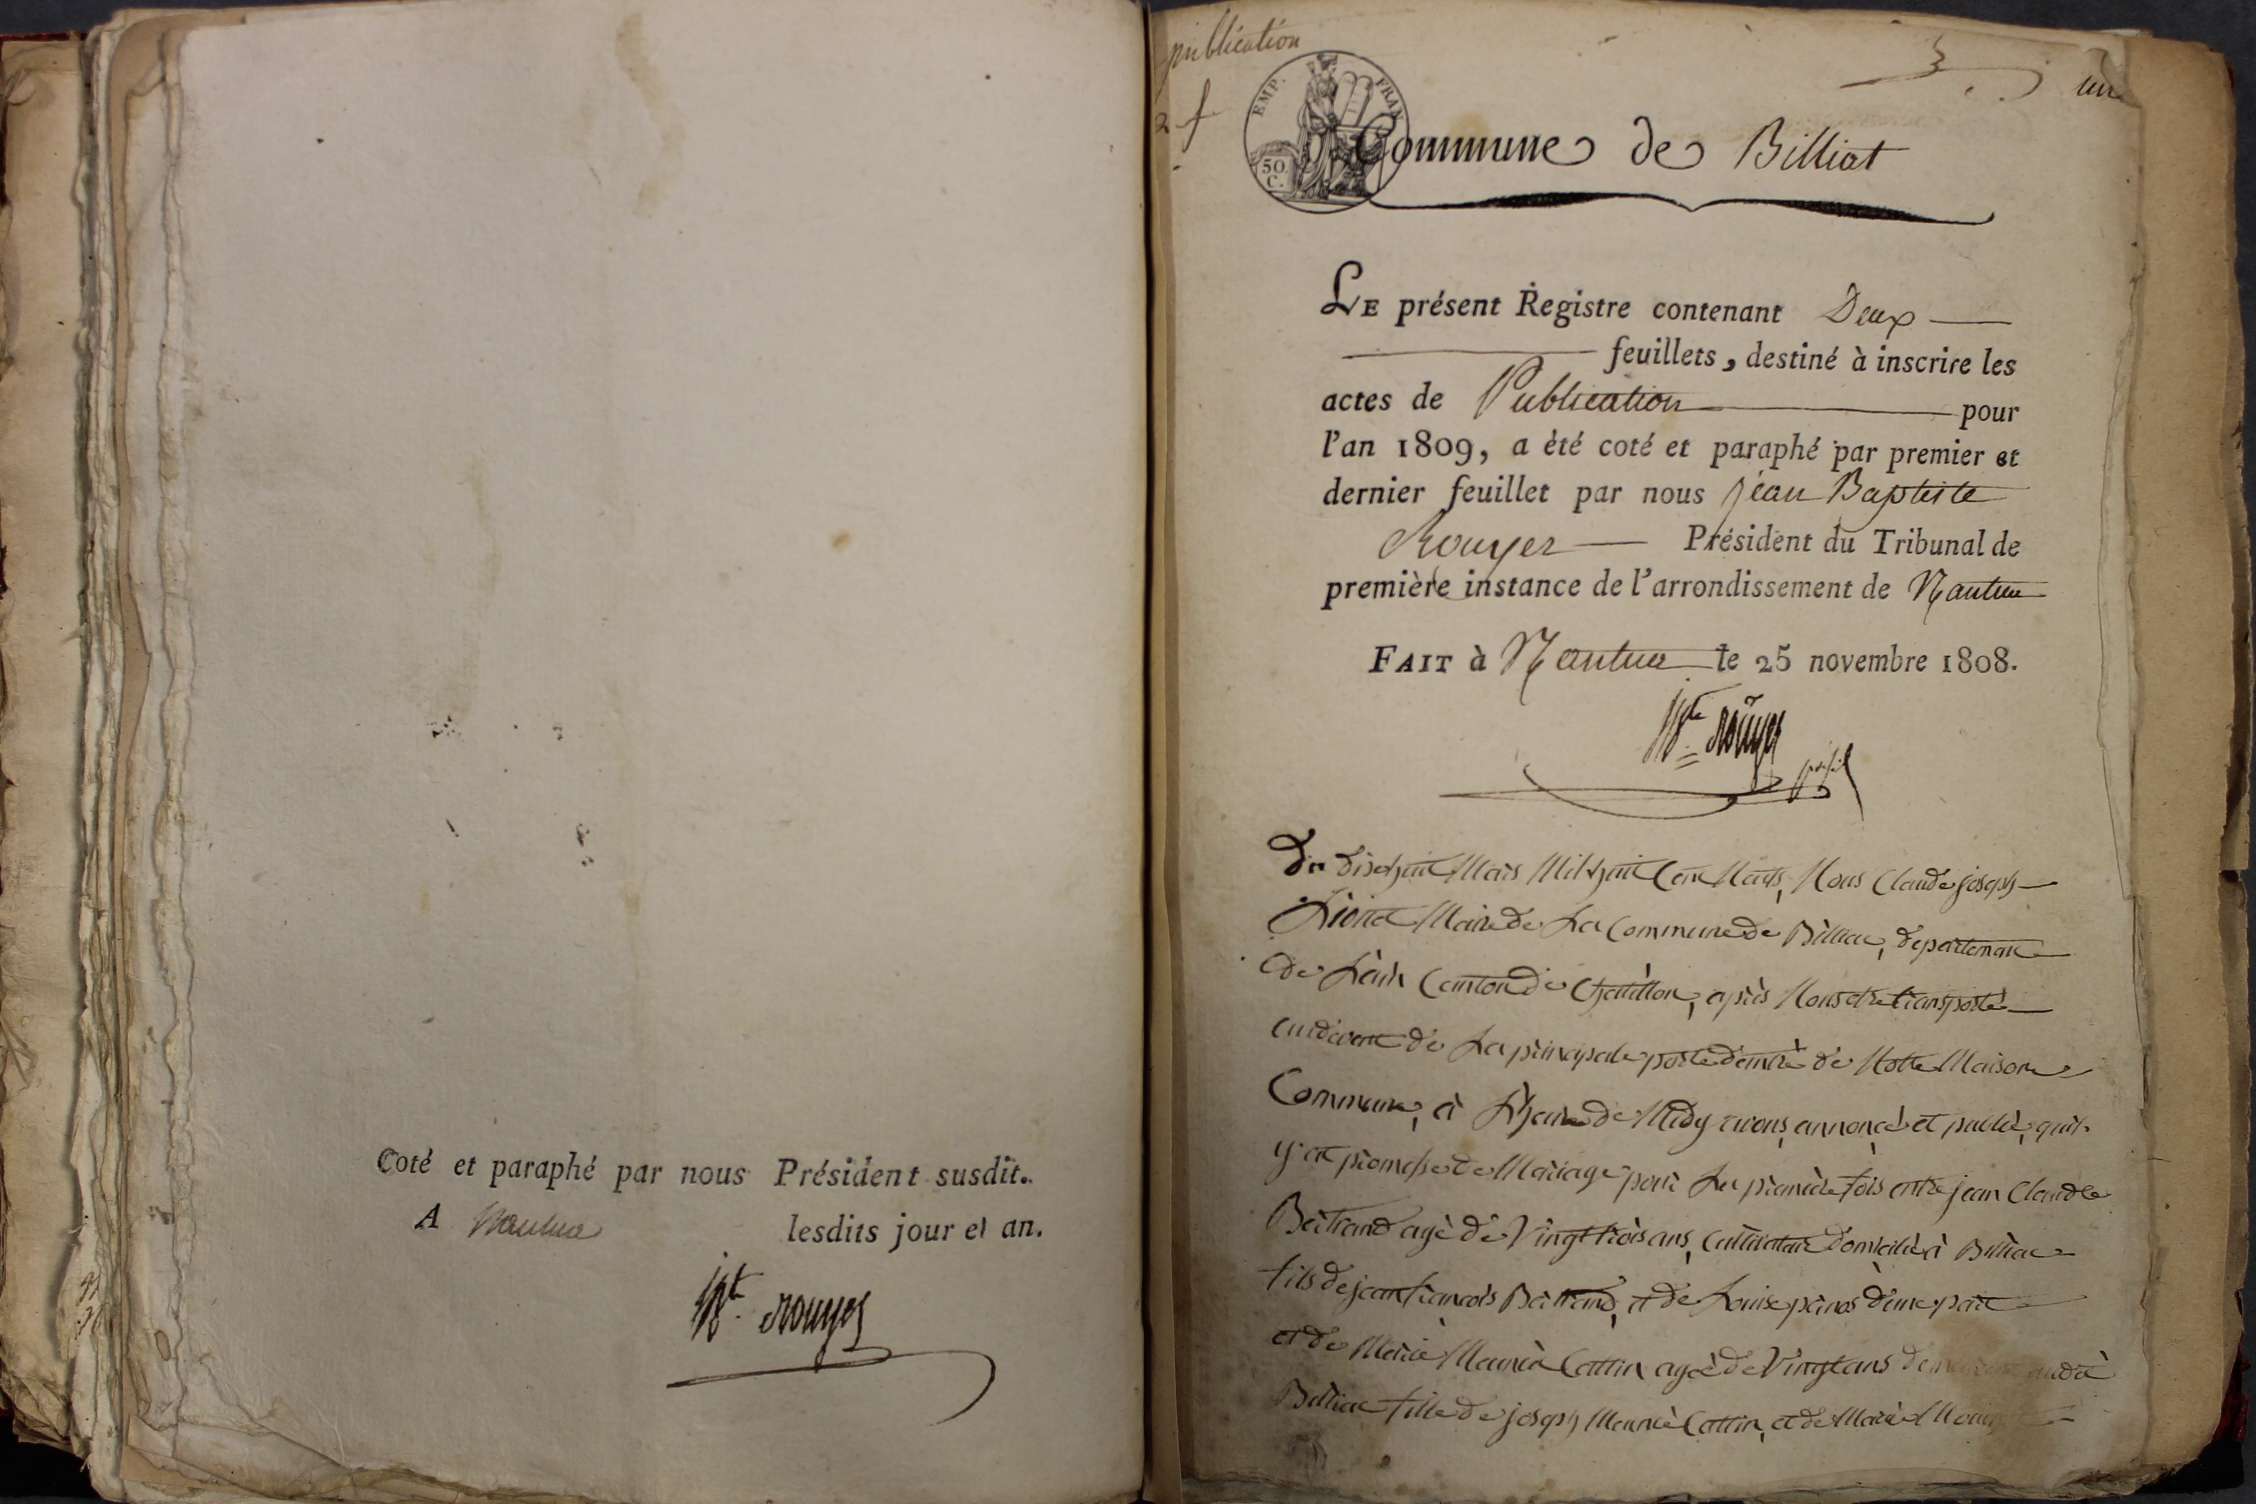 Coté et paraphé par nous Président susdit.
A Nantua lesdits jour et an.
JBte. Rouyer
publication
2 f
3
un
EMP. FRAN.
50 C.
Commune de Billiat
LE présent Registre contenant Deux
feuillets, destiné à inscrire les
actes de Publication pour
l'an 1809, a été coté et paraphé par premier et
dernier feuillet par nous jean Baptiste
Rouyer Président du Tribunal de
première instance de l'arrondissement de Nantua
FAIT à Nantua le 25 novembre 1808.
JBte. Rouyer
Du dixhuit Mars Mil huit Cent Neuf, Nous Claude joseph
Maire de La Commune de Billiat, departement
de Lain Canton de Chatillon, après Nous etre transporté
audevant de La principale porte dentré de Notre Maison
Commune, à Lheure de Midy avons annoncé et publié, quil
y at promesse de Mariage pour La premiere fois entre jean Claude
Bertrand agé de Vingt trois ans, Cultivateur domicilié à Billiat
fils de jean francois Bertrand, et de Louise d'une part
et de Marie Meunié Cattin agée de Vingt ans
Billiat fille de joseph Meunié Cattin, et de Marie